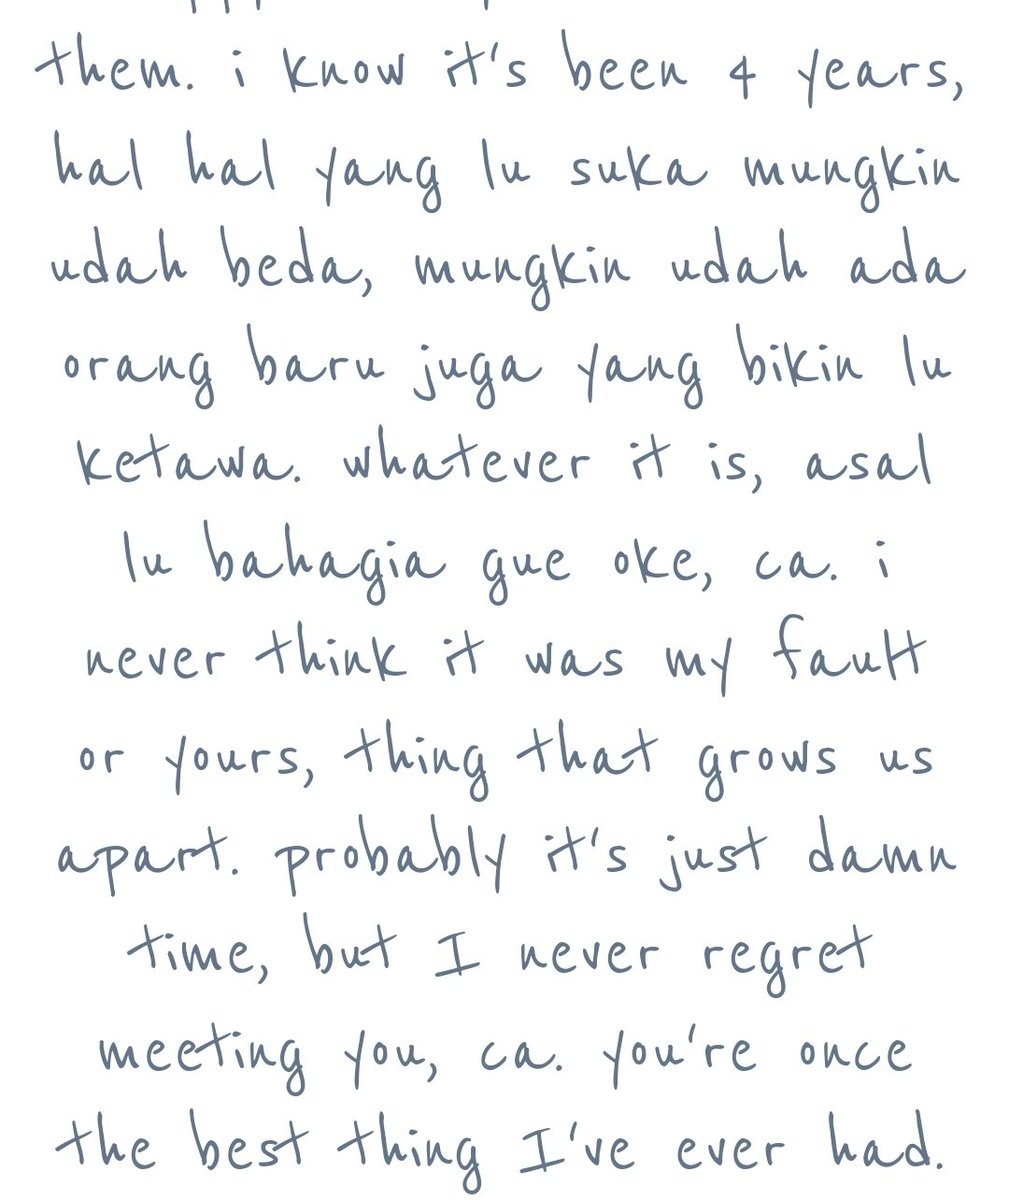 them. i know it's been 4 years,
hal hal yang lu suka mungkin
udah beda, mungkin udah ada
orang baru juga yang bikin lu
ketawa. whatever it is, asal
lu bahagia gue oke, ca. i
never think it was my fault
or yours, thing that grows us
apart. probably it's just damn
time, but I never regret
meeting you, ca. you're once
the best thing I've ever had.